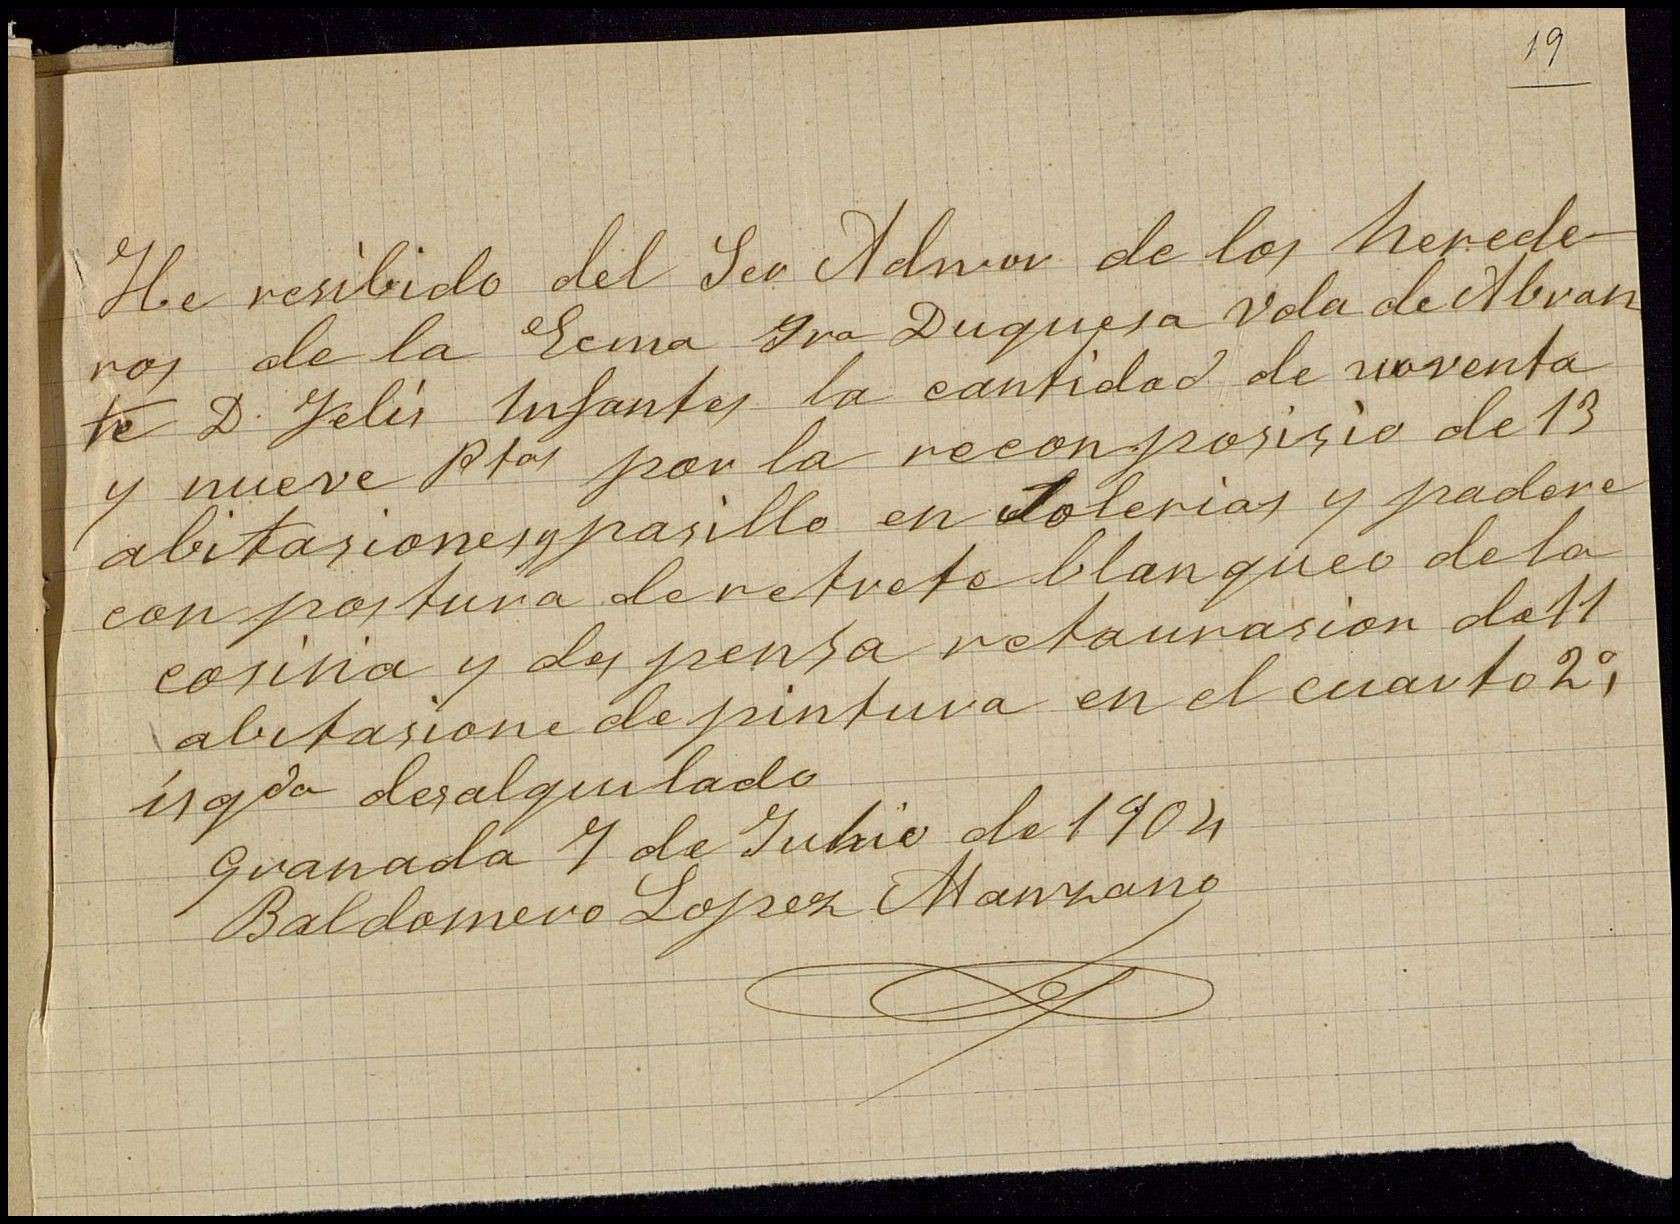 19
He resibido del Ser Admor de los herede-
ros de la Ecma Sra Duquesa Vda de Abran
te D. Felis Infantes la cantidad de noventa
y nueve Ptas por la reconposisio de 13
abitasiones y pasillo en Solerias y padere
conpostura de retrete blanqueo de la
cosina y despensa retaurasion de 11
abitasione de pintura en el cuarto 2º,
isqda desalquilado
Granada 7 de Julio de 1904
Baldomero Lopez Manzano